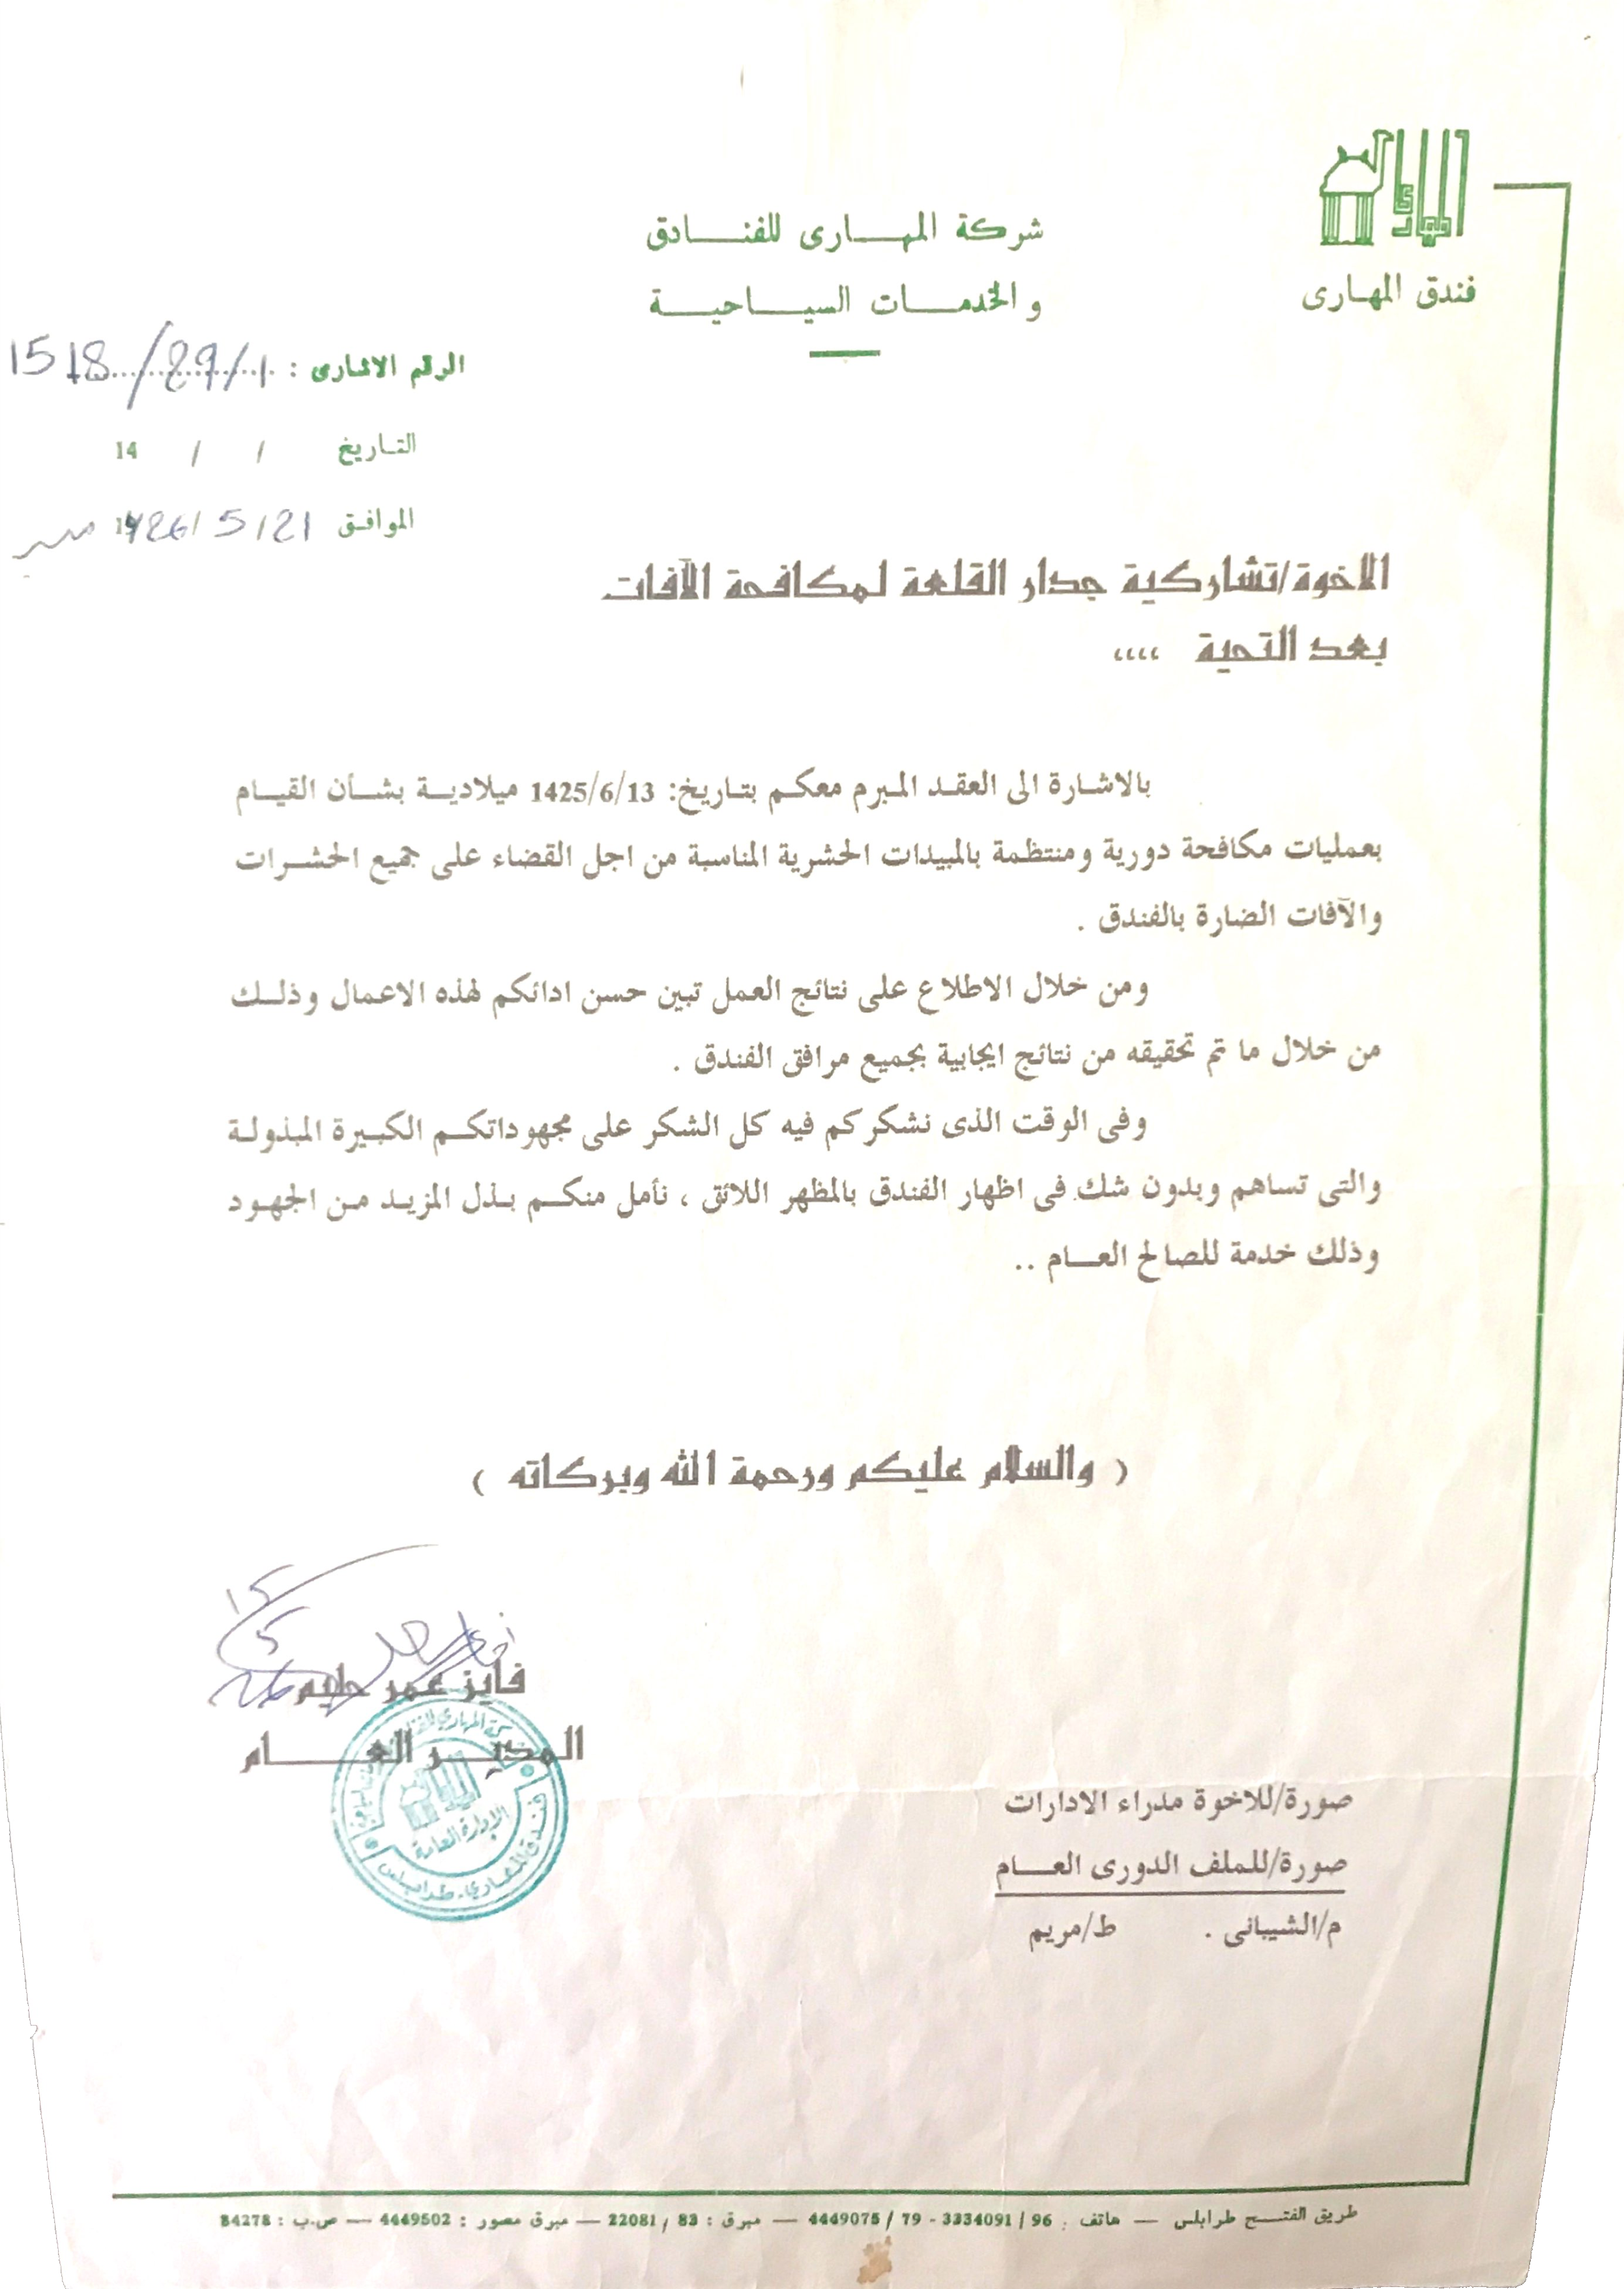 المهارى
فندق المهارى
شركة المهـــارى للفنـــادق
والخدمـــات السيـــاحيـــة
الرقم الاشارى : 1/89/1518
التاريخ / / 14
الموافق 21/5/1426
الاخوة/تشاركية جدار القلعة لمكافحة الآفات
بعد التحية ،،،،
بالاشارة الى العقد المبرم معكم بتاريخ: 1425/6/13 ميلادية بشأن القيام
بعمليات مكافحة دورية ومنتظمة بالمبيدات الحشرية المناسبة من اجل القضاء على جميع الحشرات
والآفات الضارة بالفندق .
ومن خلال الاطلاع على نتائج العمل تبين حسن ادائكم لهذه الاعمال وذلك
من خلال ما تم تحقيقه من نتائج ايجابية بجميع مرافق الفندق .
وفى الوقت الذى نشكركم فيه كل الشكر على مجهوداتكم الكبيرة المبذولة
والتى تساهم وبدون شك فى اظهار الفندق بالمظهر اللائق ، نأمل منكم بذل المزيد من الجهود
وذلك خدمة للصالح العــام ..
( والسلام عليكم ورحمة الله وبركاته )
فايز عمر
المديـــر العـــــام
الإدارة العامة
فندق المهاري - طرابلس
صورة/للاخوة مدراء الادارات
صورة/للملف الدورى العــام
م/الشيبانى . ط/مريم
طريق الفتـــح طرابلس — هاتف : 96 / 3334091 - 79 / 4449075 — مبرق : 83 / 22081 — مبرق مصور : 4449502 — ص.ب : 84278